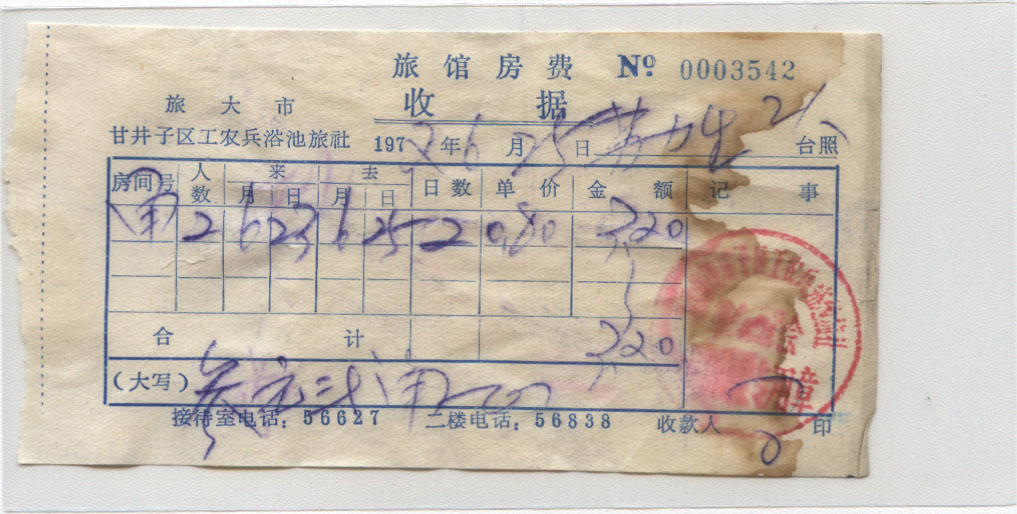 旅馆房费 Nº 0003542
收据
旅大市
甘井子区工农兵浴池旅社 197 年 6 月 25 日 台照
房间号 人数 来 月 日 去 月 日 日数 单价 金额 记事
2 6 23 6 25 2 0.80 3.20
合计 3.20
(大写) 叁元贰角
接待室电话:56627 二楼电话:56838 收款人 印